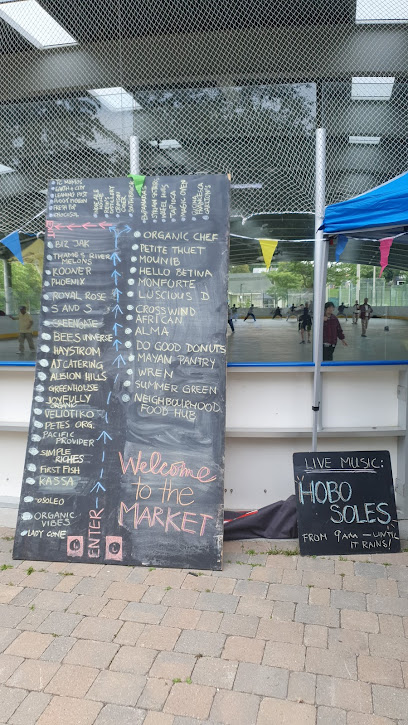 EARTH & CITY
FRESH TAP
CHOCOSOL
BIZ JAK
THAMES RIVER
MELONS
ROOWER
PHOENIX
ROYAL ROSE
S AND S
GREENGATE
BEES UNIVERSE
HAYSTROM
AJ CATERING
ALBION HILLS
GREENHOUSE
JOYFULLY
ORGANIC
VELIOTIKO
PETES ORG.
PACIFIC
PROVIDER
SIMPLE
RICHES
FIRST FISH
KASSA
OSOLEO
ORGANIC
VIBES
LADY CONE
ENTER
ORGANIC CHEF
PETITE THUET
MOUNIB
HELLO BETINA
MONFORTE
LUSCIOUS D
CROSSWIND
AFRICAN
ALMA
DO GOOD DONUTS
MAYAN PANTRY
WREN
SUMMER GREEN
NEIGHBOURHOOD
FOOD HUB
Welcome
to the
MARKET
LIVE MUSIC:
HOBO
SOLES
FROM 9AM - UNTIL
IT RAINS!